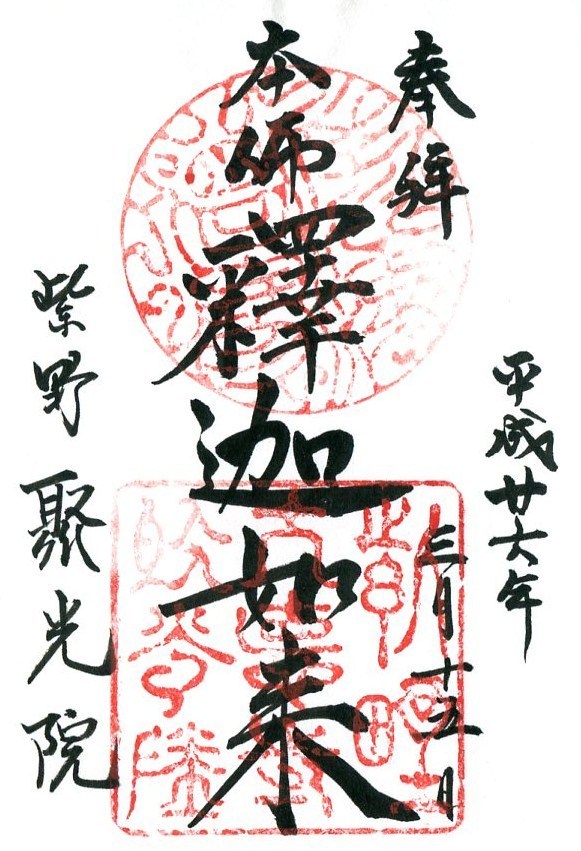 奉拝
平成廿六年
三月十五日
本師釋迦如来
紫野聚光院